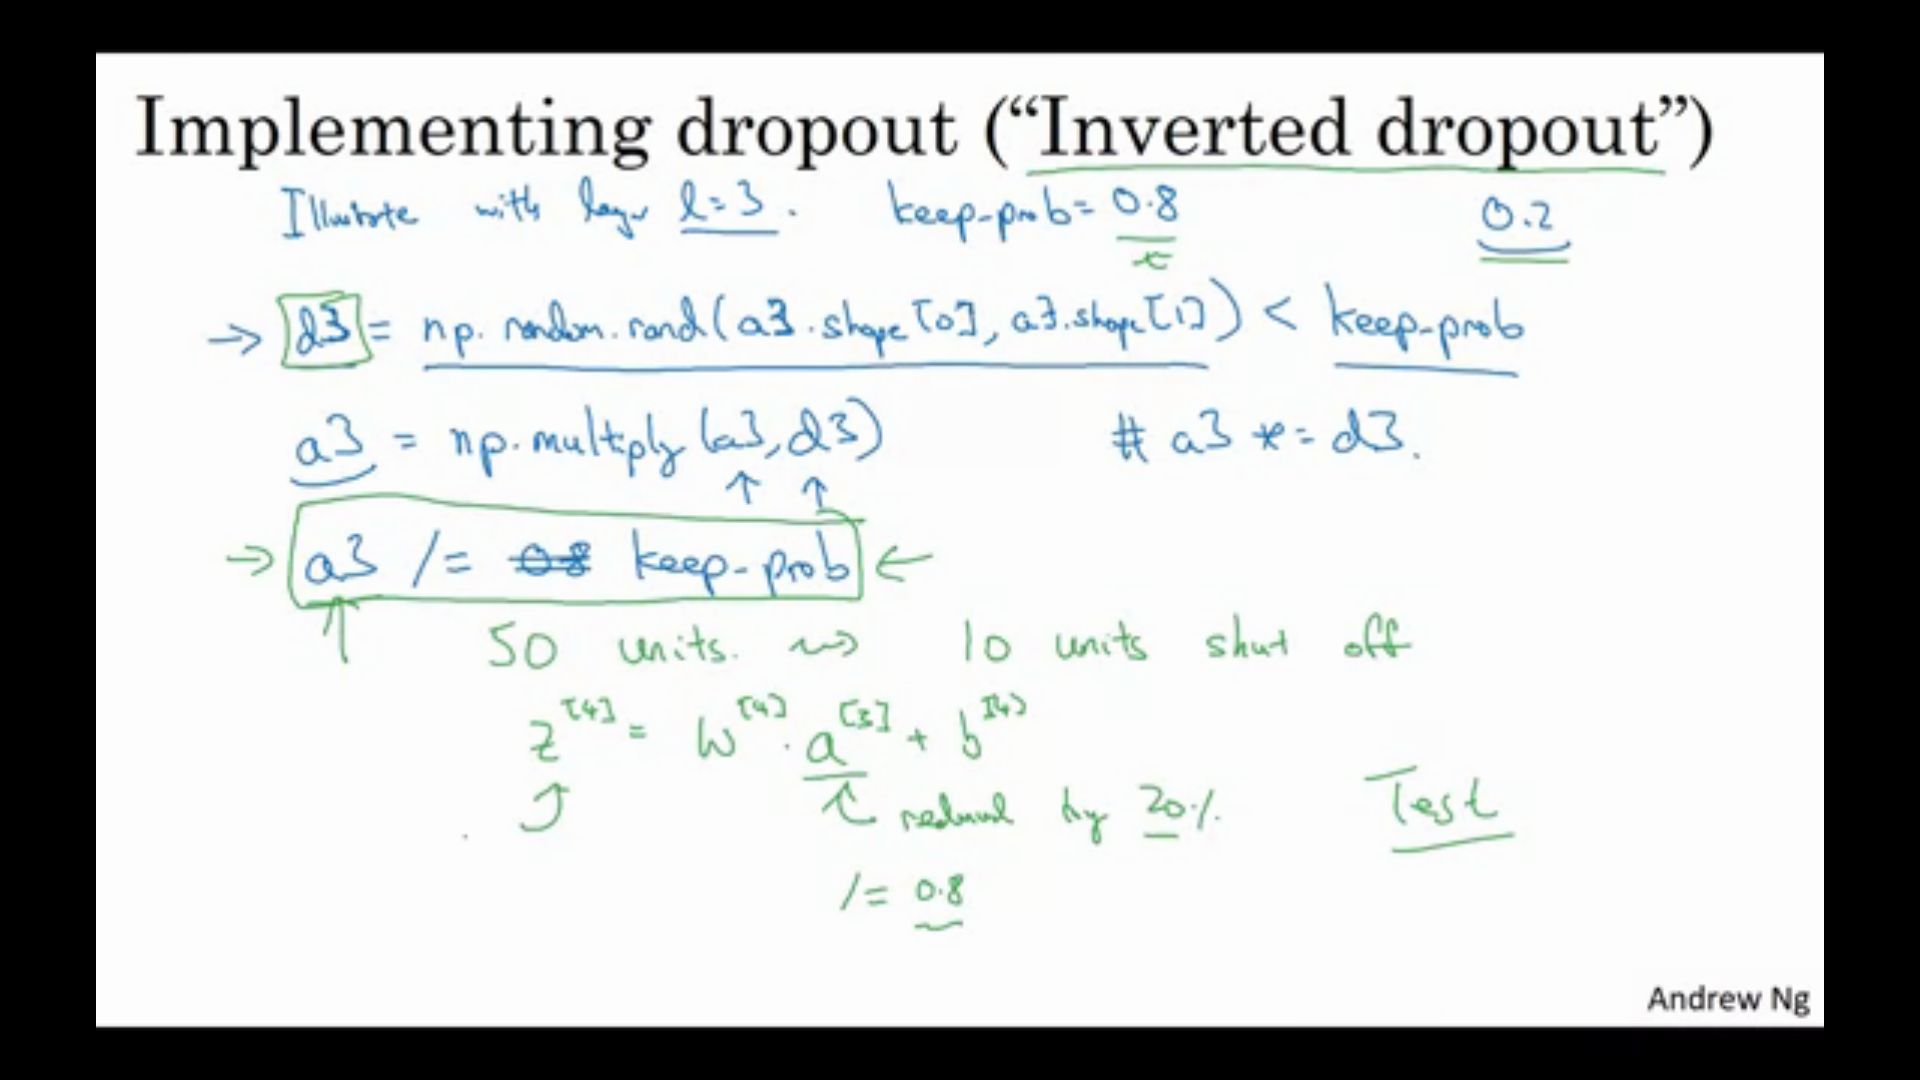 Implementing dropout (“Inverted dropout”)
Illustrate with layer l=3. keep-prob= 0.8 0.2
→ d3 = np.random.rand(a3.shape[0], a3.shape[1]) < keep-prob
a3 = np.multiply(a3, d3) # a3 *= d3.
↑ ↑
→ a3 /= 0.8 keep-prob ←
↑ 50 units. ⇝ 10 units shut off
z[4] = W[4] · a[3] + b[4]
reduced by 20% Test
/= 0.8
Andrew Ng